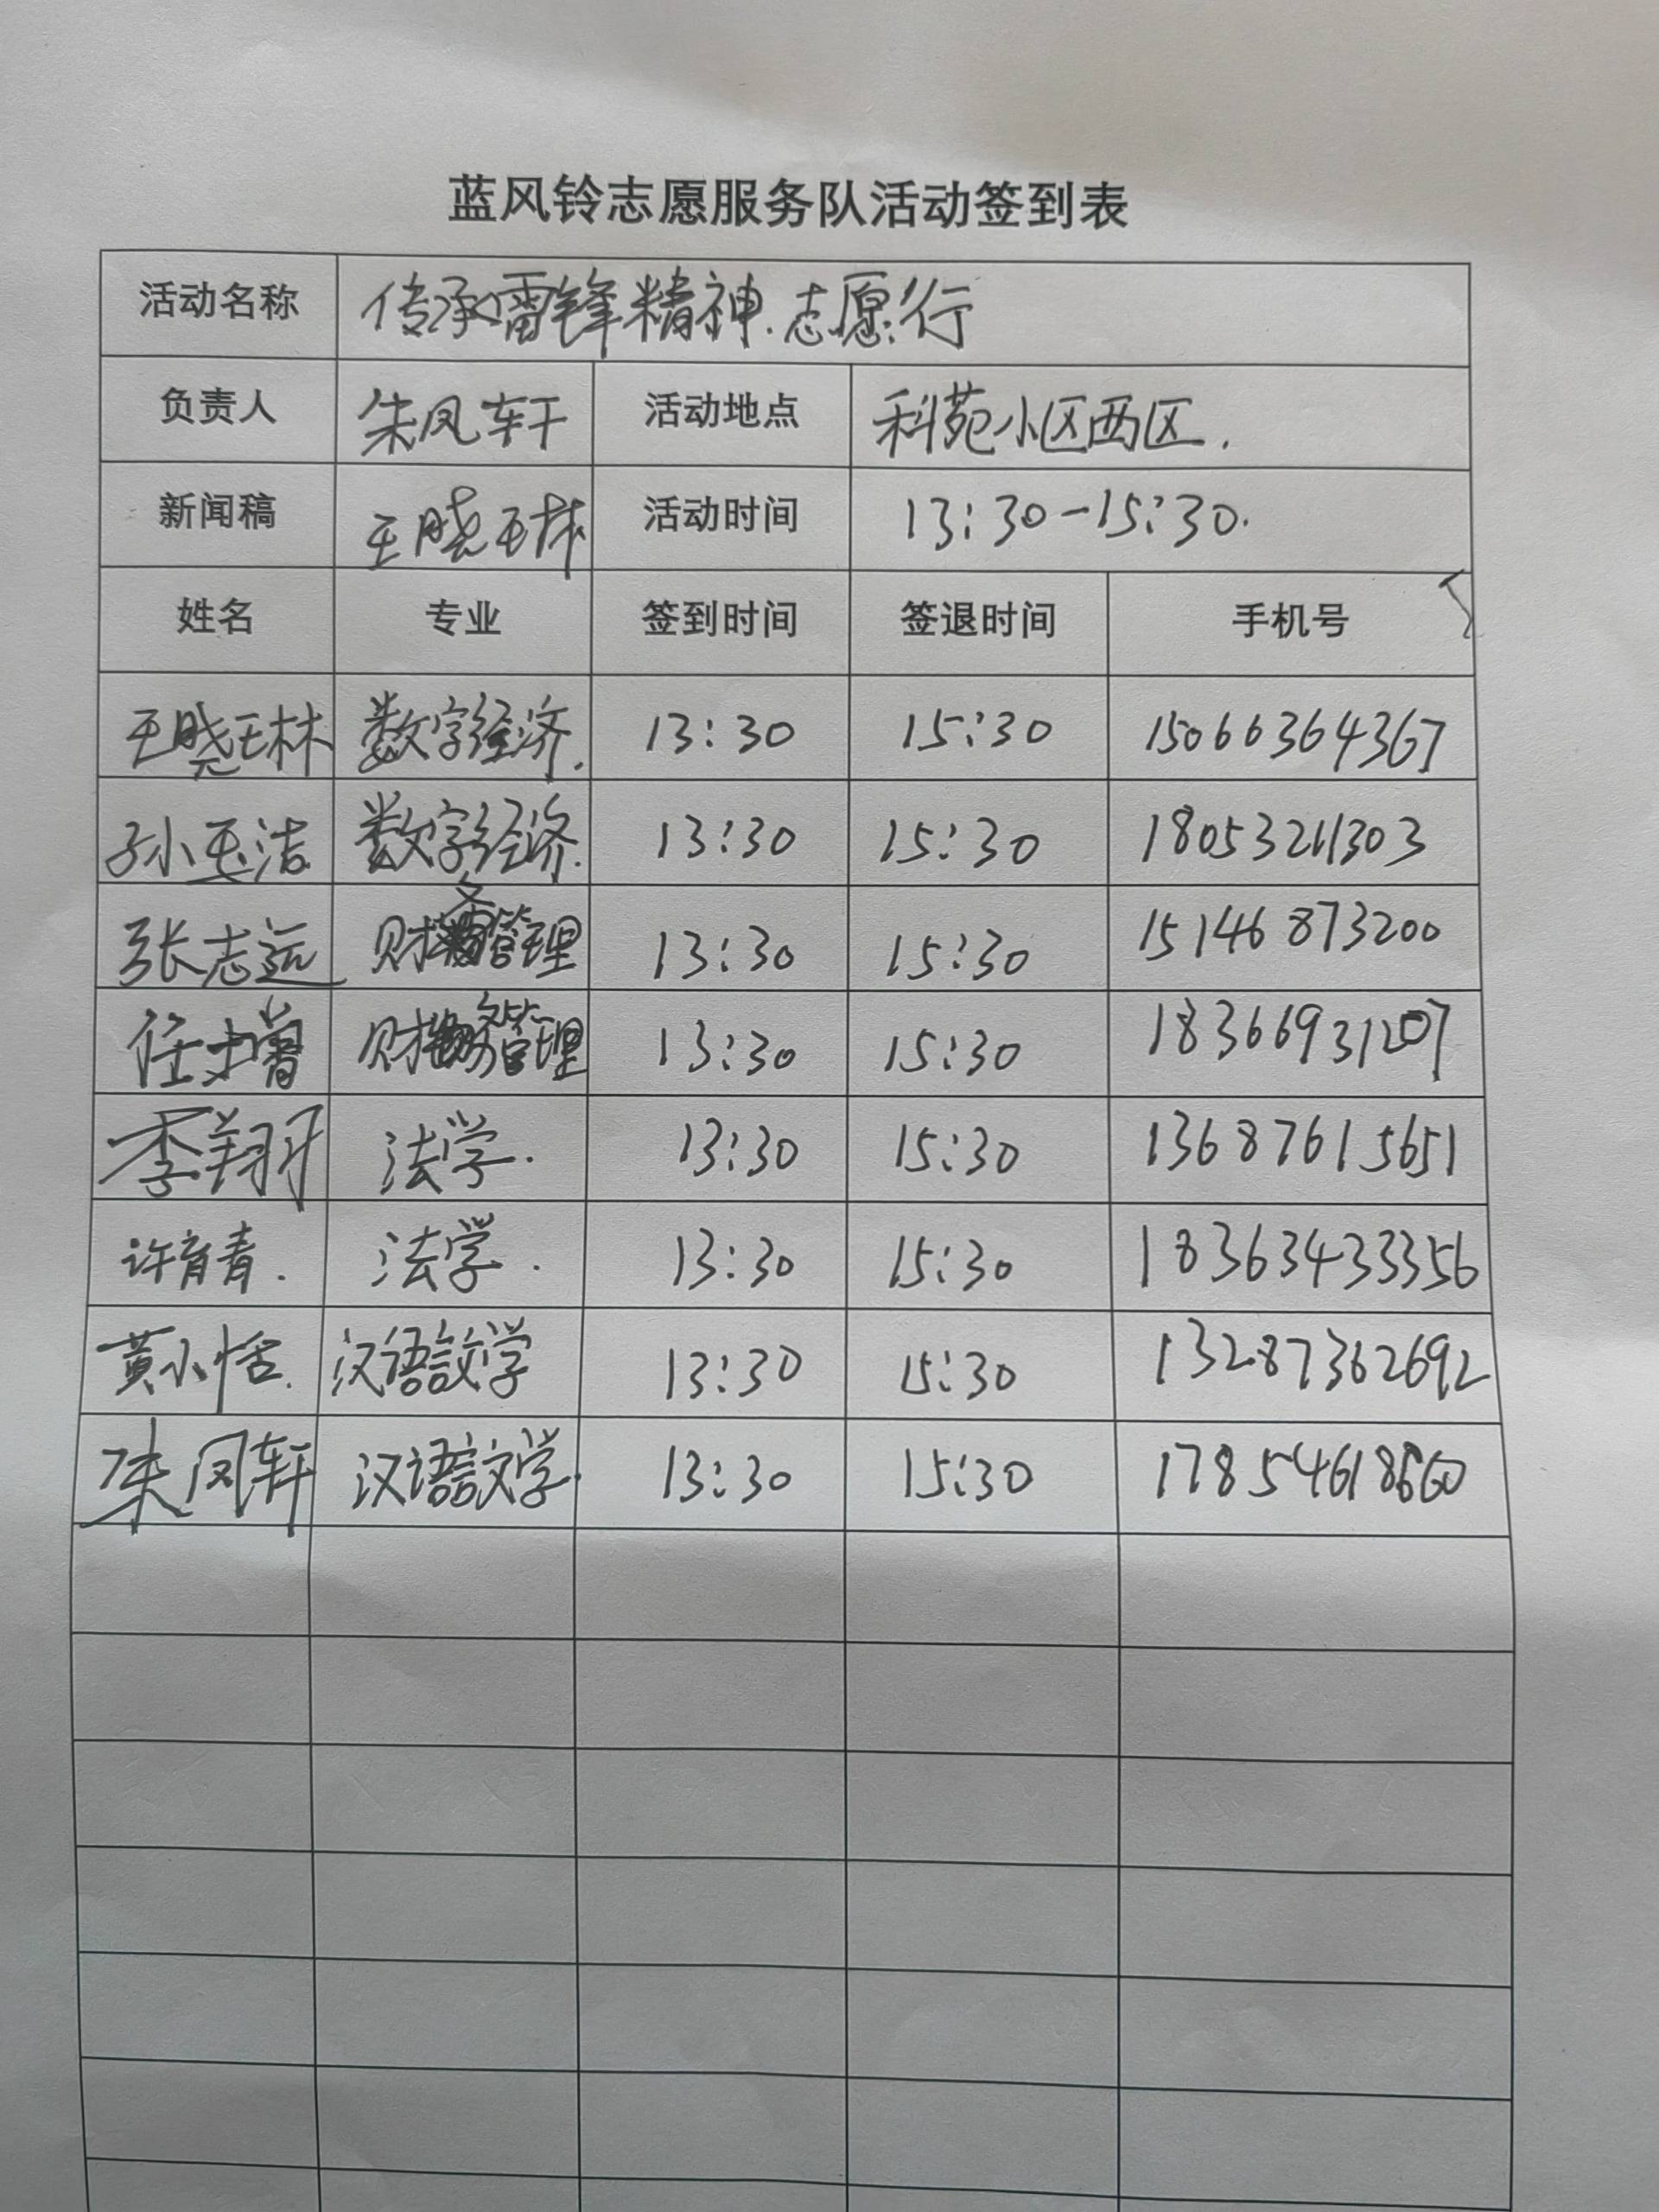 蓝风铃志愿服务队活动签到表
活动名称 传承雷锋精神.志愿行
负责人 朱凤轩 活动地点 科苑小区西区.
新闻稿 王晓琳 活动时间 13:30-15:30.
姓名 专业 签到时间 签退时间 手机号
王晓琳 数字经济. 13:30 15:30 15066364367
孙玉洁 数字经济. 13:30 15:30 18053261303
张志远 财务管理 13:30 15:30 15146873200
任 财务管理 13:30 15:30 18366931207
李翔 法学. 13:30 15:30 13687615651
许育青. 法学. 13:30 15:30 18363433356
黄小恬. 汉语言文学 13:30 15:30 13287362692
朱凤轩 汉语言文学. 13:30 15:30 17854618660